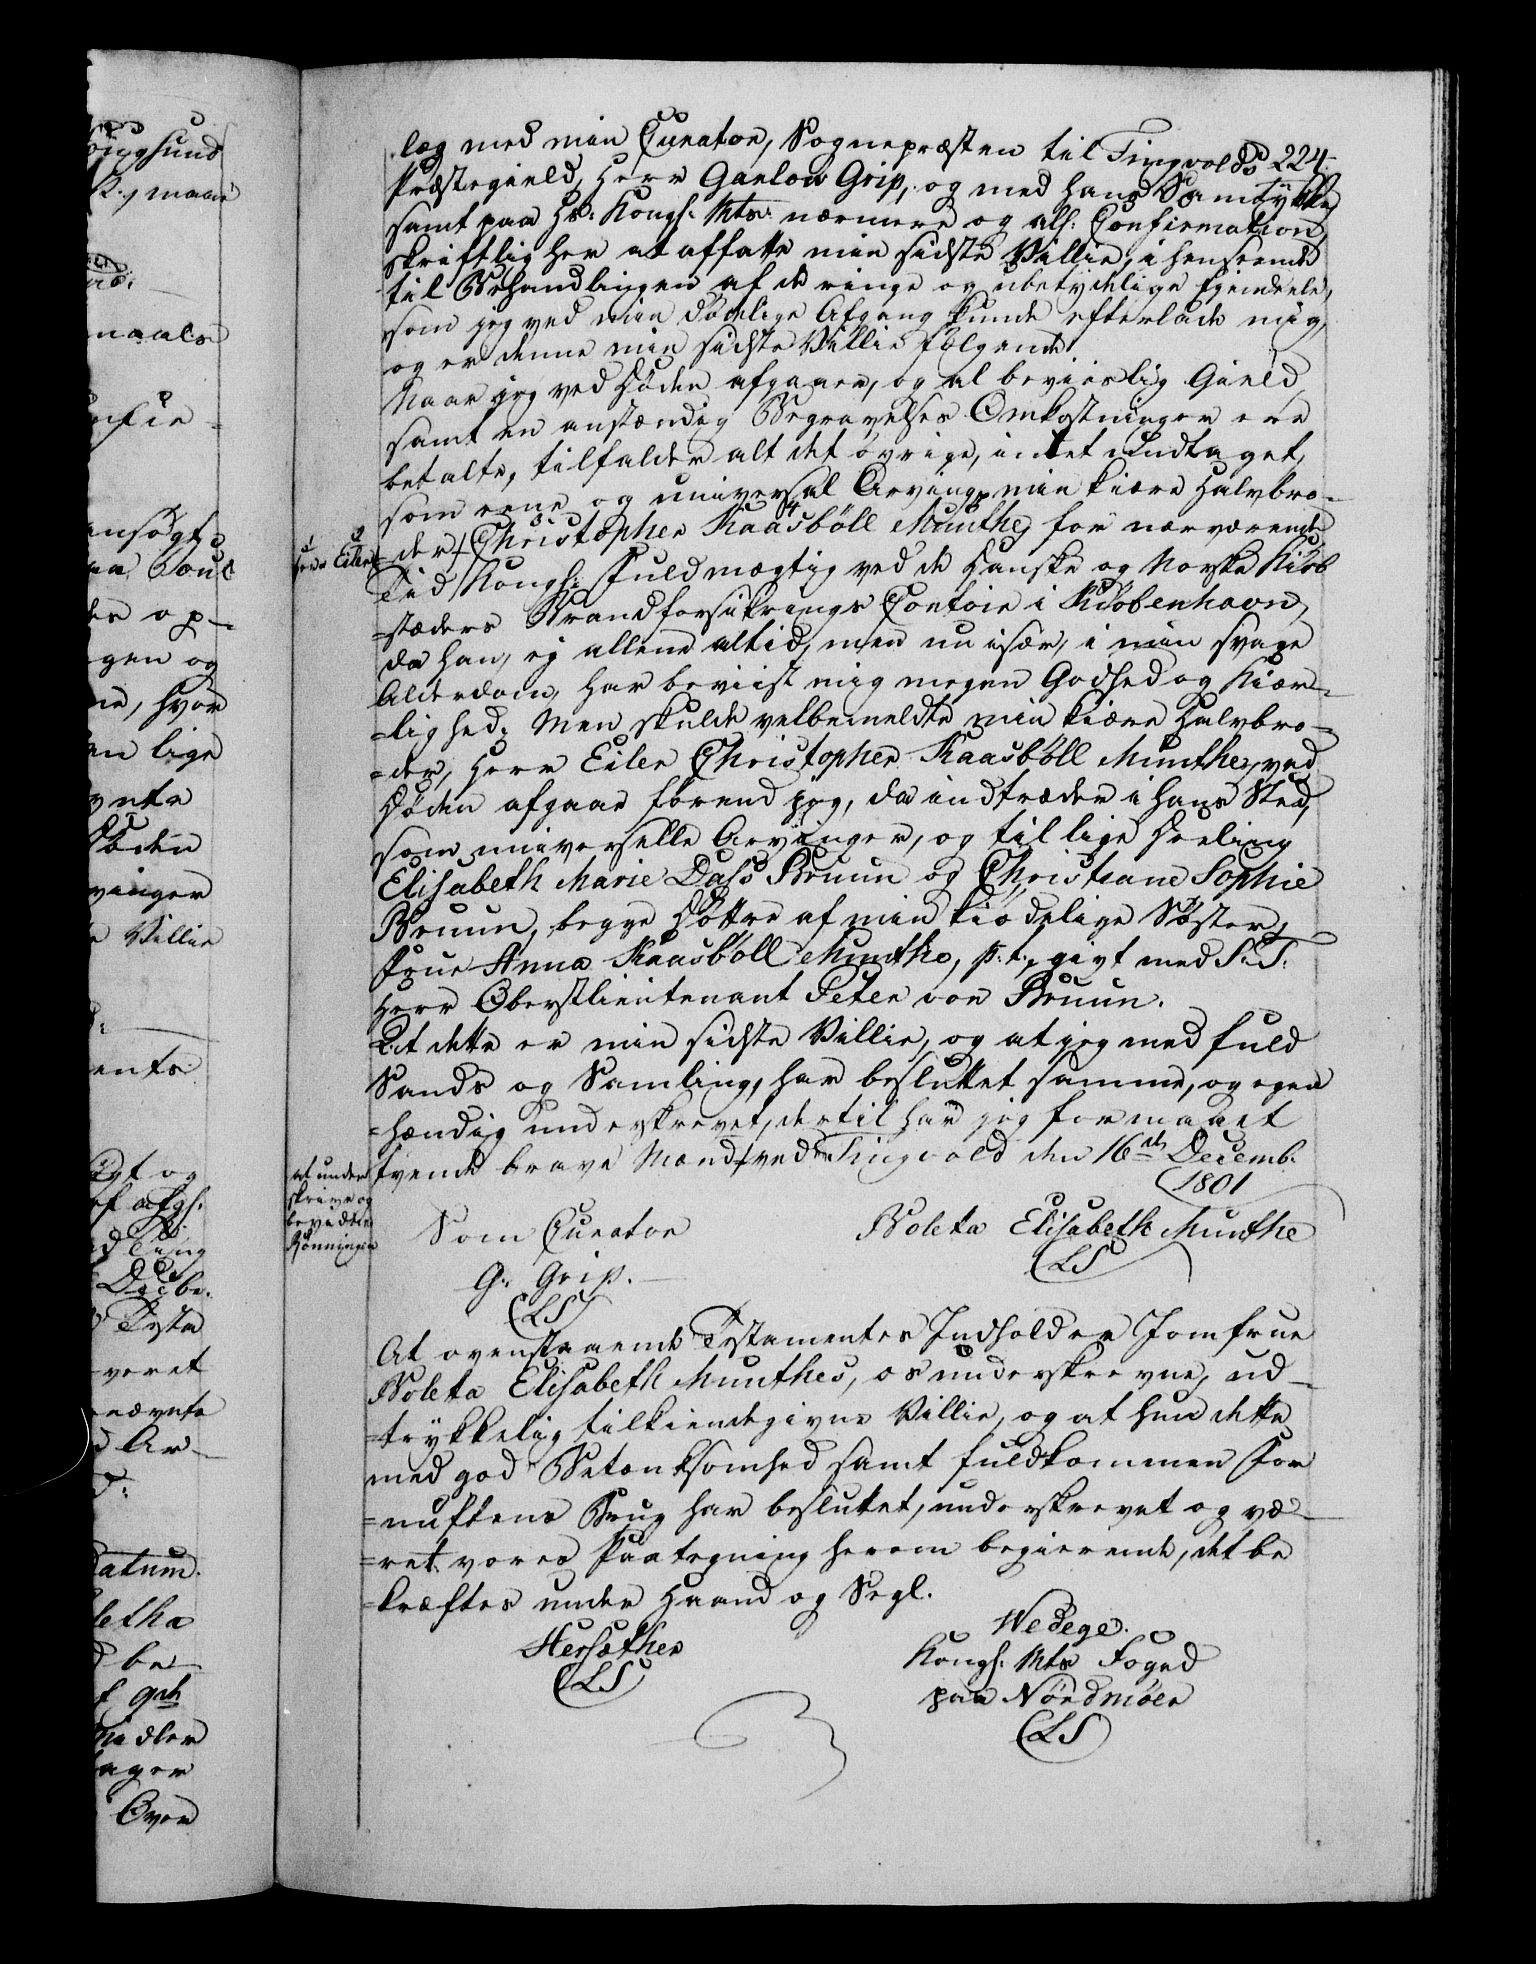 224.
læg med min Curator, Sognepræsten til Tingvolds
Præstegield, Herr Ganlow Grip, og med hans Samtykke,
samt paa Hs: Kongl: Mts: nærmere og all: Confirmation,
skriftlig her at affatte min sidste Villie, i henseende
til Behandlingen af de ringe og ubetydelige Eiendeele,
som jeg ved min dödelige Afgang kunde efterlade mig,
og er denne min sidste Villie følgende:
Naar jeg ved Döden afgaaer, og al beviislig Gield,
samt en anstændig Begravelses Omkostninger ere
betalte, tilfalder alt det övrige, intet undtaget,
som eene og universal Arving, min kiære Halvbro-
=der, Christopher Kaasböll Munthe, for nærværende
Herr Eiler
Tid Kongl: Fuldmægtig ved de Danske og Norske Kiöb
=stæders Brandforsikrings Contoir i Kiöbenhavn,
da han, ej allene altid, men nu især, i min svage
Alderdom, har beviist mig megen Godhed og Kiær-
=lighed. Men skulde velbemeldte min kiære Halvbro-
=der, Herr Eiler Christopher Kaasböll Munthe, ved
Döden afgaae förend jeg, da indtræder i hans Sted,
som universelle Arvinger, og til lige Deeling
Elisabeth Marie Dass Bruun og Christiane Sophie
Bruun, begge Döttre af min kiödelige Söster,
Frue Anna Kaasböll Munthe, p. t. givt med S. T.
Herr Oberstlieutenant Peter von Bruun.
At dette er min sidste Villie, og at jeg med fuld
Sands og Samling, har besluttet samme, og egen
=hændig underskrevet, dertil har jeg formaaet
tvende brave Mænd ved Tingvold den 16de Decemb.
1801
at under
skrive og
bevidne
Rönningen
Som Curator
Noleta Elisabeth Munthe
G: Grip.
(LS)
(LS)
At ovenstaaende Testamentes Indhold er Jomfrue
Noleta Elisabeth Munthes, os underskrevne, ud-
=trykkelig tilkiendegivne Villie, og at hun dette
med god Betænksomhed samt fuldkommen For
=nuftens Brug har besluttet, underskrevet og væ-
=ret vores Paategning herom begierende, det be
=kræftes under Haand og Segl.
Hersæther
(LS)
Wedege.
Kongl: Mts Foged
paa Nördmöer
(LS)